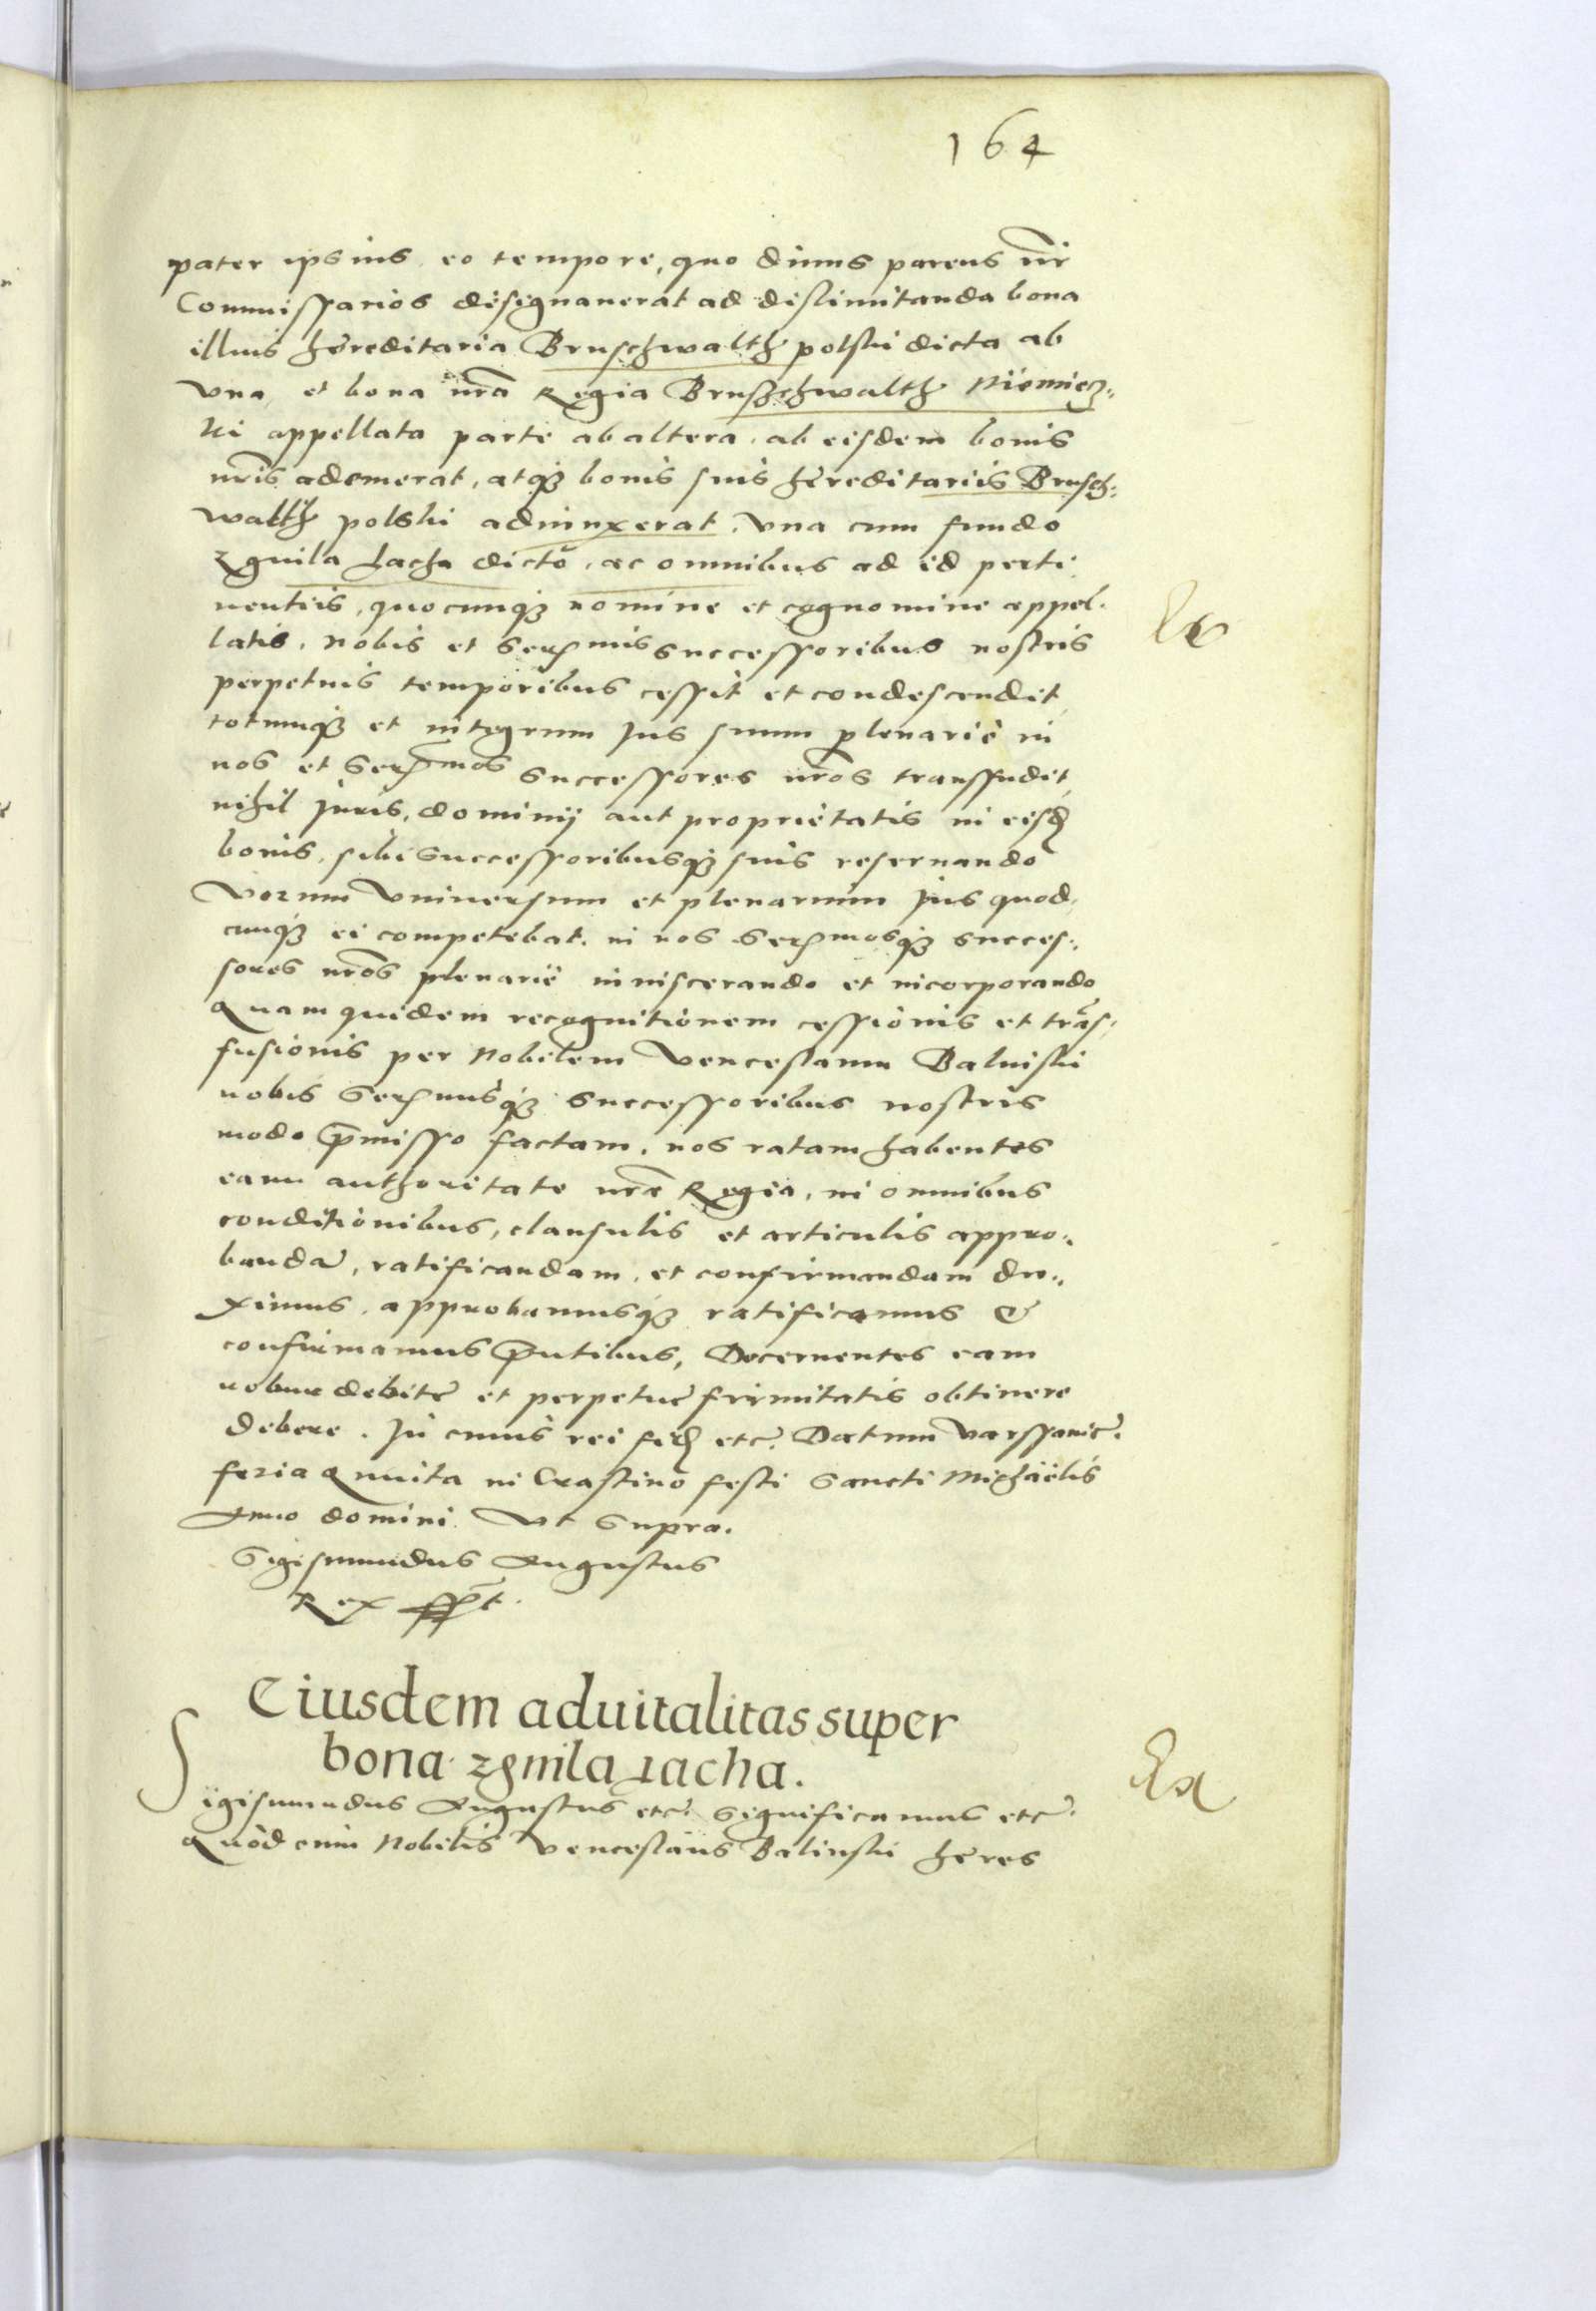 164
pater ipsius eo tempore, quo diuus parens nr̄
Commissarios designauerat ad dislimitanda bona
illius hereditaria Bruschwalth polski dicta ab
vna et bona nrā Regia Bruschwalth Niemiecz-
ki appellata parte ab altera, ab eisdem bonis
nrīs ademerat, atq̃ bonis suis hereditariis Brusch-
walth polski adiunxerat. Vna cum fundo
Zgnila Łacha dicto, ac omnibus ad id perti
nentiis, quocunq̃ nomine et cognomine appel-
latis, nobis et Serenmis successoribus nostris
perpetuis temporibus cessit et condescendit,
totumq̃ et integrum Jus suum plenariè in
nos et Serenmos successores nrōs transfudit,
nihil Juris, dominij aut proprietatis in eisd
bonis, sibi successoribusq̃ suis reseruando
Verum vniuersum et plenarium Jus quod-
cunq̃ ei competebat, in nos Serenmosq̃ succes-
sores nrōs plenariè inuiscerando et incorporando
Quam quidem recognitionem cessionis et trās-
fusionis per Nobilem Venceslaum Balinski
nobis Serenmisq̃ successoribus nostris
modo p̄misso factam, nos ratam habentes
eam authoritate nrā Regia, in omnibus
conditionibus, clausulis et articulis appro-
bandā, ratificandam, et confirmandam du-
ximus, approbamusq̃ ratificamus &
confirmamus p̄ntibus, Decernentes eam
robur debitę et perpetuę firmitatis obtinere
debere. In cuius rei fid etc. Datum Varssauię.
feria Quinta in Crastino festi Sancti Michaëlis
Anno domini Vt supra.
Sigismundus Augustus
Rex sspt.
Eiusdem aduitalitas super
bona zgnila Łacha.
Sigismundus Augustus etc. significamus etc.
Quòd cum Nobilis Venceslaus Balinski heres